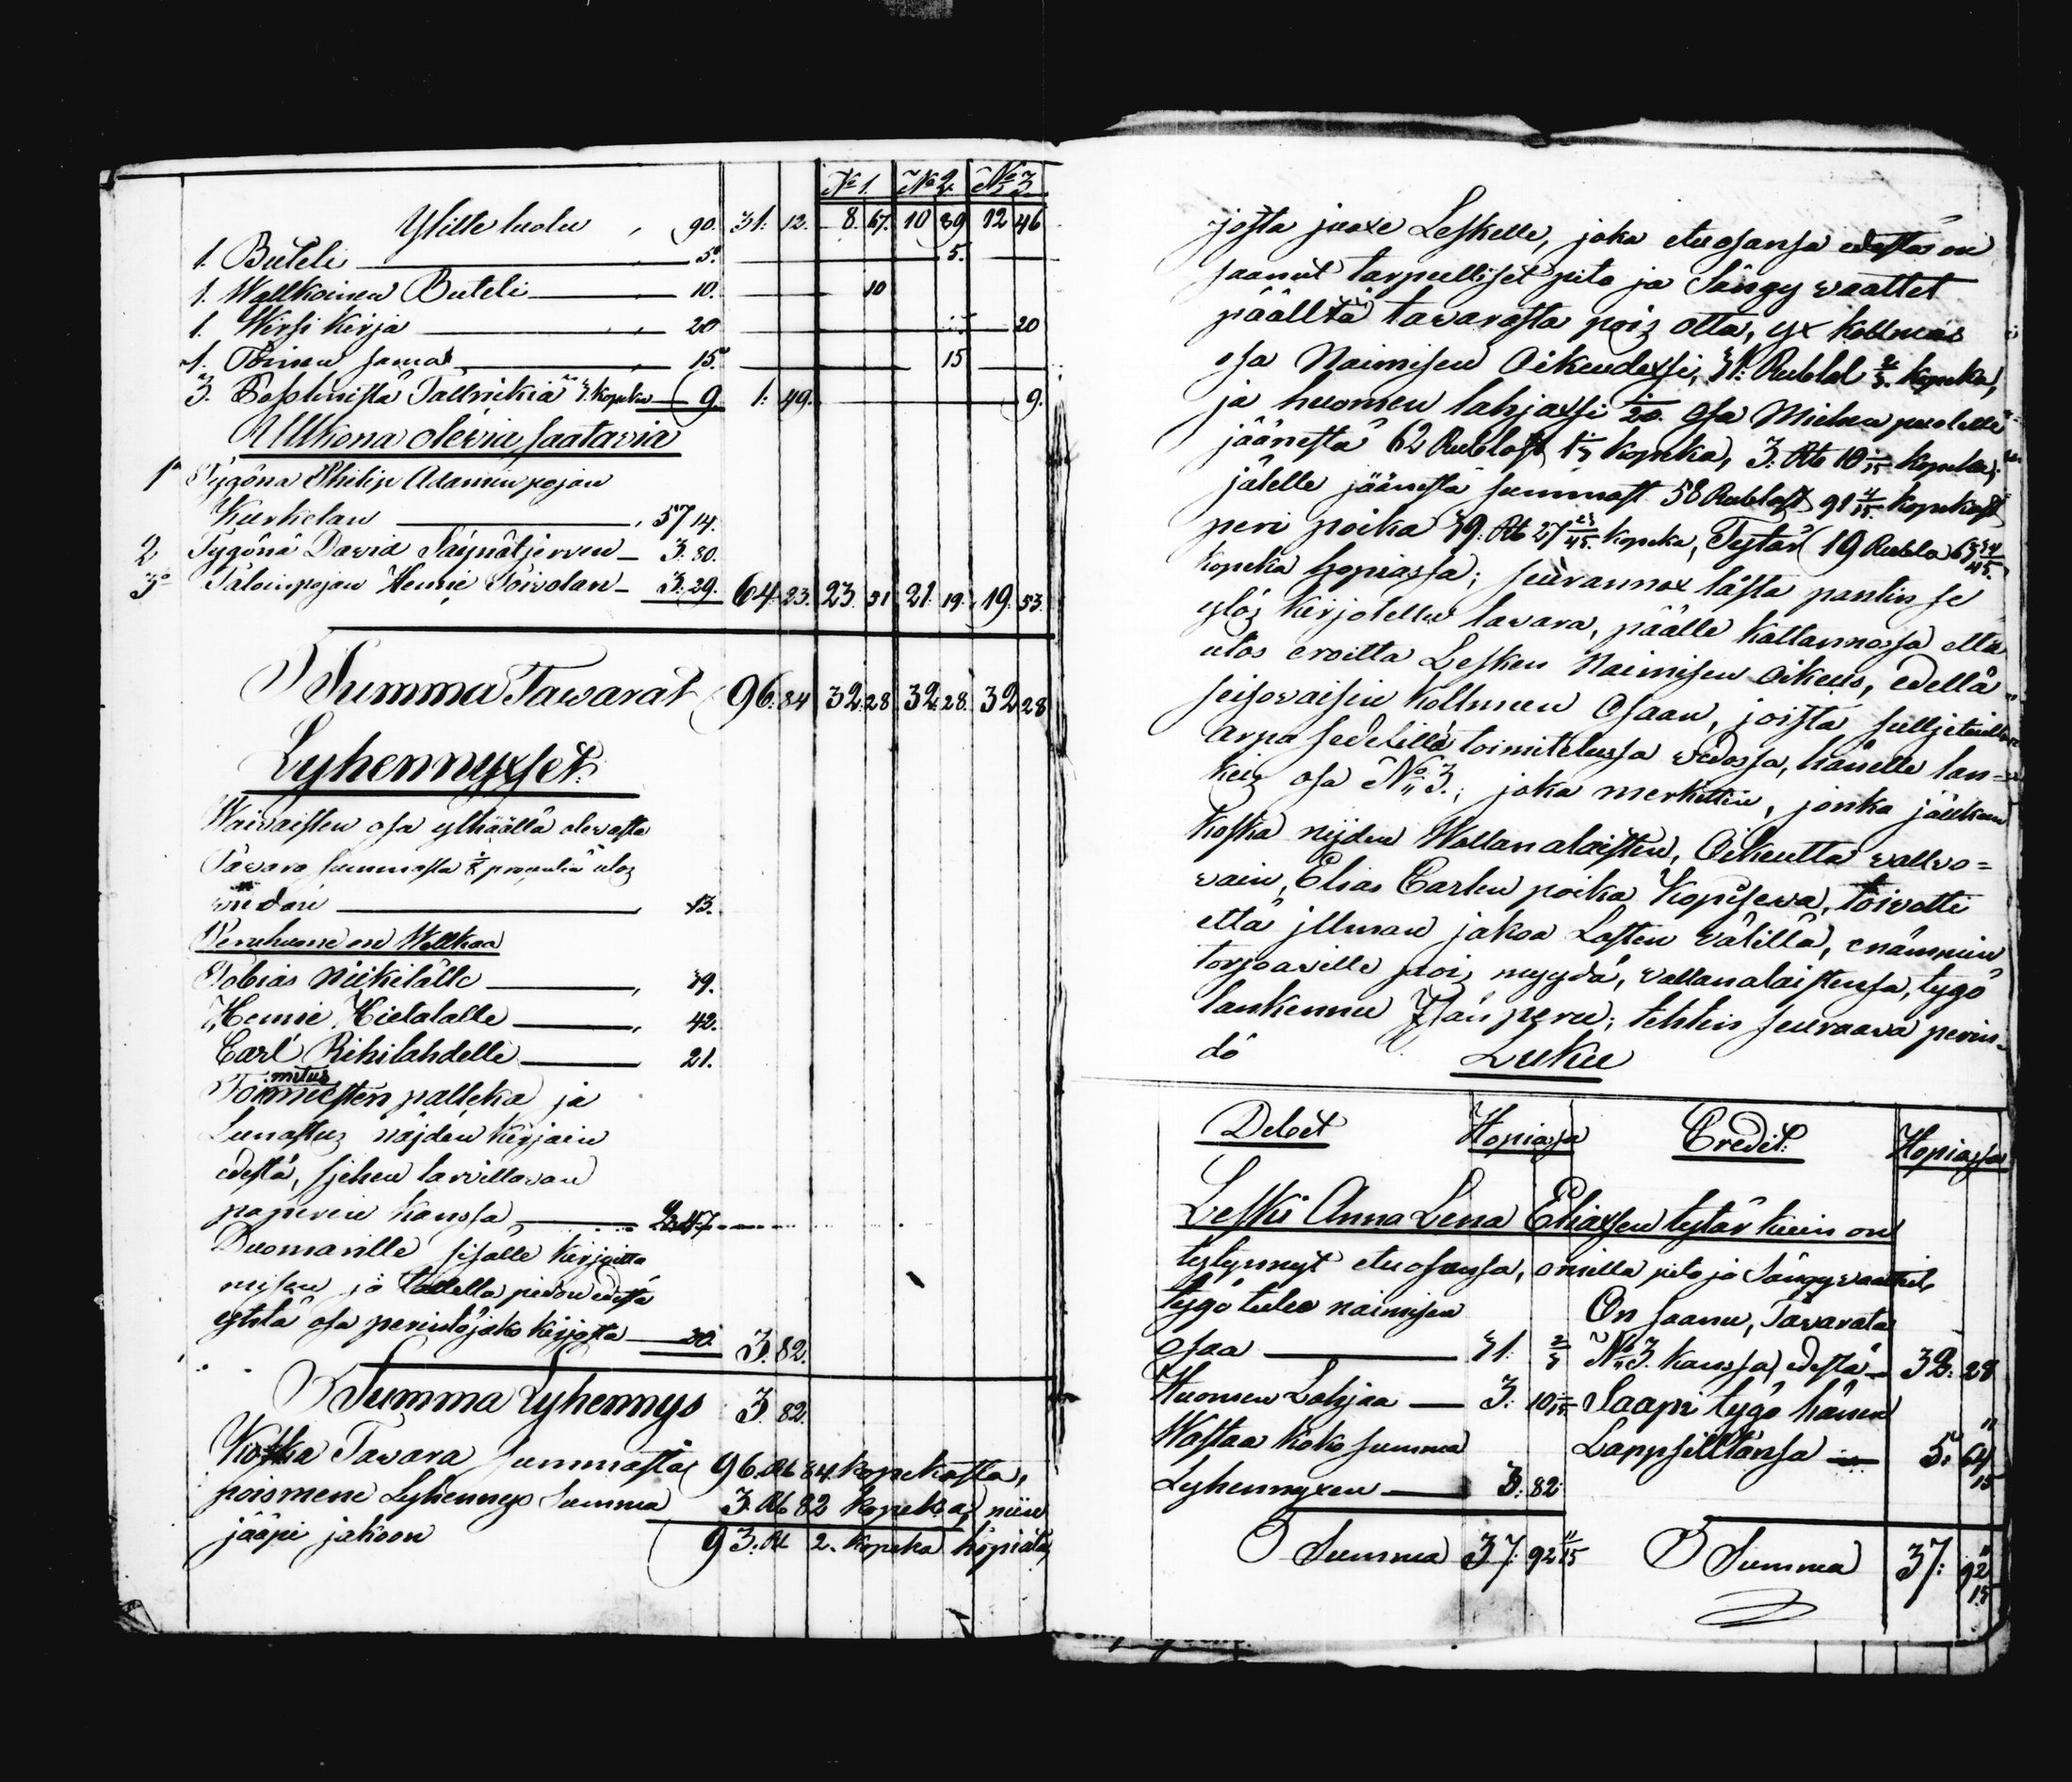 No 1. No 2. No 3.
Ylitte luolu , 90. 31: 12. 8. 67. 10 39 12 46
1. Buteli 5. 5.
1. Walkoinen Buteli 10. 10
1. Wirsi Kirja 20 20
1. Toinen sama 15. 15
3. Poslinista Tallrikiä 3. kopeka 9. 1: 49. 9.
Ulkona olevia saatavia
1 Tygönä Philip Adamin pojan
Kurkelan , 57 14.
2 Tygönä David Säynätjerven 3. 80.
3 Taloinpojan Henric Toivolan 3. 29. 64: 23. 23. 51 21. 19. 19. 53.
Summa Tavarat 96: 84 32: 28 32: 28. 32 28
Lyhennyxset.
Waivaisten osa ylhäällä olevasta
Tavara summasta 1/8 procentia ulos
vedäri , 13.
Peruhuone on Welkaa
Tobias Niikilälle , 39.
Henric Hietalalle , 42.
Carl Rihilahdelle 21.
Toimitus miesten palkka ja
Lunastus näiden kirjain
edestä, siehen tarvittavan
paperin kanssa 2. 47
Duomarille sisälle kirjoitta
misen ja tallella pidon edestä
yhtä osa perindöjako kirjasta 30. 3. 82.
Summa Lyhennys 3. 82.
Koska Tavara summasta 96. Rb 84. kopekasta,
poismene Lyhennys Summa 3. Rb 82 kopeka, niin
jääpi jakoon 93. Rb 2. kopeka hopiata,
josta juoxe Leskelle, joka etuosansa edestä on
saanut tarpeelliset pito ja Sängy vaattet
päältä tavarasta pois otta, yx kolmas
osa Naimisen Oikeudexsi, 31. Rublal 2/3. kopeka,
ja huomen lahjaxsi 1/20. Osa Miehen puolelle
jäänestä 62 Rublast 1 1/3 kopeka, 3. Rb 10 1/15 kopeka;
jälelle jäänestä summast 58 Rublast 91 4/15 kopekast
peri poika 39. Rb 27 23/45. kopeka, Tytär 19 Rubla 63 34/45.
kopeka hopiassa; seurannox tästä pantin se
ylös kirjotettu tavara, päälle kattannossa että
ulos eroitta Lesken Naimisen oikeus, edellä
seisovaisin kolmeen Osaan, joista suljetuilla
arpa sedelillä toimitetussa vedossa, hänelle lan=
keis osa No 3.; joka merkittin, jonka jälken
koska niiden Wallanalaisten, Oikeutta valvo=
vain, Elias Carlen poika Kopisewa, toivotti
että jlman jakoa Lasten välillä, enämmin
torjoaville pois myydä, vallanalaistensa, tygö
lankennu Isän peru; tehtin seuraava perin=
dö Luku
Debet Hopiassa Credit. Hopiassa
Leski Anna Lena Eliaxsen tytär kuin on
tyytynnyt etuosansa, omilla pito ja Sängyvaatteit,
Tygö tulee naimisen On saanu, Tavarata
osaa 31: 2/3 No 3. kanssa, edestä 32: 28
Huomen Lahjaa 3. 10 1/15 Saapi tygö hänen
Wastaa koko summa Lappsilltänsä 5. 64 11/15
Lyhennyxen 3: 82:
Summa 37: 92 11/15 Summa 37: 92 11/15